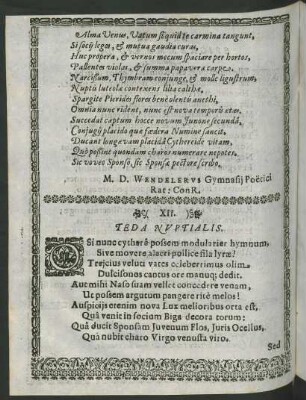 Alma Venus, Vatum siquid te carmina tangunt,
Si socij leges, & mutua gaudia curæ.
Huc propera, & vernos mecum spaciare per hortos,
Pallentes violas, & summa papavera carpes.
Narcissum, Thymbram conjunge, & molle ligustrum,
Nuptis luteola contexens lilia caltha.
Spargite Pierides flores beneolentis anethi,
Omnia nunc rident, nunc est nova temporis ætas.
Succedas captum hocce novum Junone secundâ,
Conjugij placido quæ fœdera Numine sancit.
Ducant longævam placidâ Cythereide vitam.
Quò possint quondam charos numerare nepotes.
Sic voveo Sponso, sic Sponsæ pectore scribo.
M. D. WENDELERVS Gymnasij Poëtici
Rat: ConR.
XII.
TEDA NVPTIALIS.
Si nunc cytharê possem modularier hymnum,
Sive movere alacri pollice fila lyræ?
Treicius velut vates celeberrimus olim
Dulcisonos cantus ore manuq; dedit.
Aut mihi Naso suam vellet concedere venam,
Ut possem argutum pangere ritè melos!
Auspicijs etenim nova Lux melioribus orta est,
Quâ venit in socium Biga decora torum:
Quâ ducit Sponsam Juvenum Flos, Juris Ocellus,
Quâ nubit charo Virgo venusta viro.
Sed